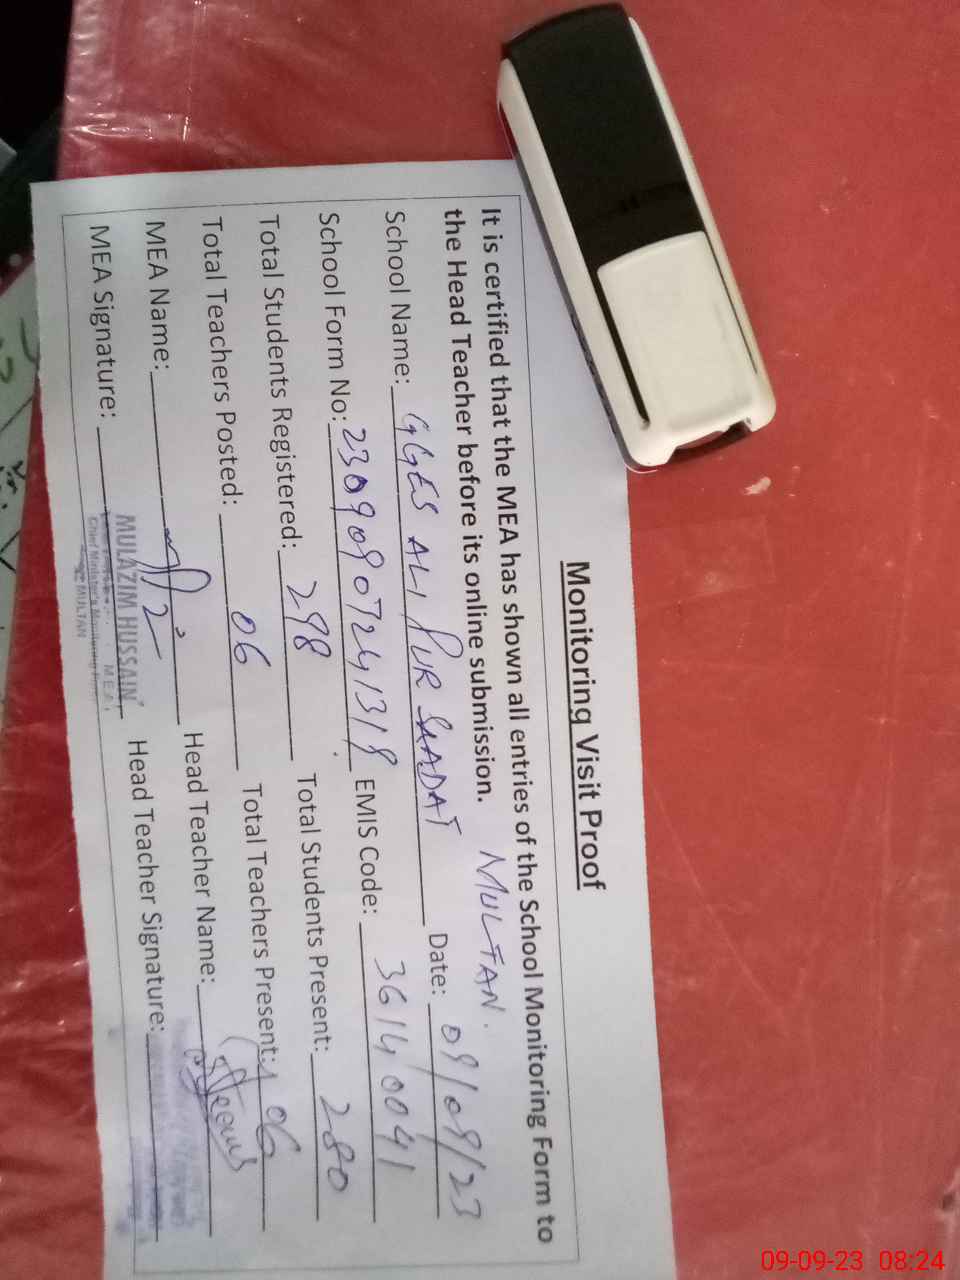 Monitoring Visit Proof
It is certified that the MEA has shown all entries of the School Monitoring Form to
the Head Teacher before its online submission. MULTAN.
School Name: GGES ALI PUR SAADAT Date: 09/09/23
School Form No: 23090907241319 EMIS Code: 36140041
Total Students Registered: 298 Total Students Present: 280
Total Teachers Posted: 06 Total Teachers Present: 06
MEA Name: Head Teacher Name:
MEA Signature: MULAZIM HUSSAIN Head Teacher Signature:
M.E.A
Chief Minister's Monitoring Force
MULTAN
09-09-23 08:24